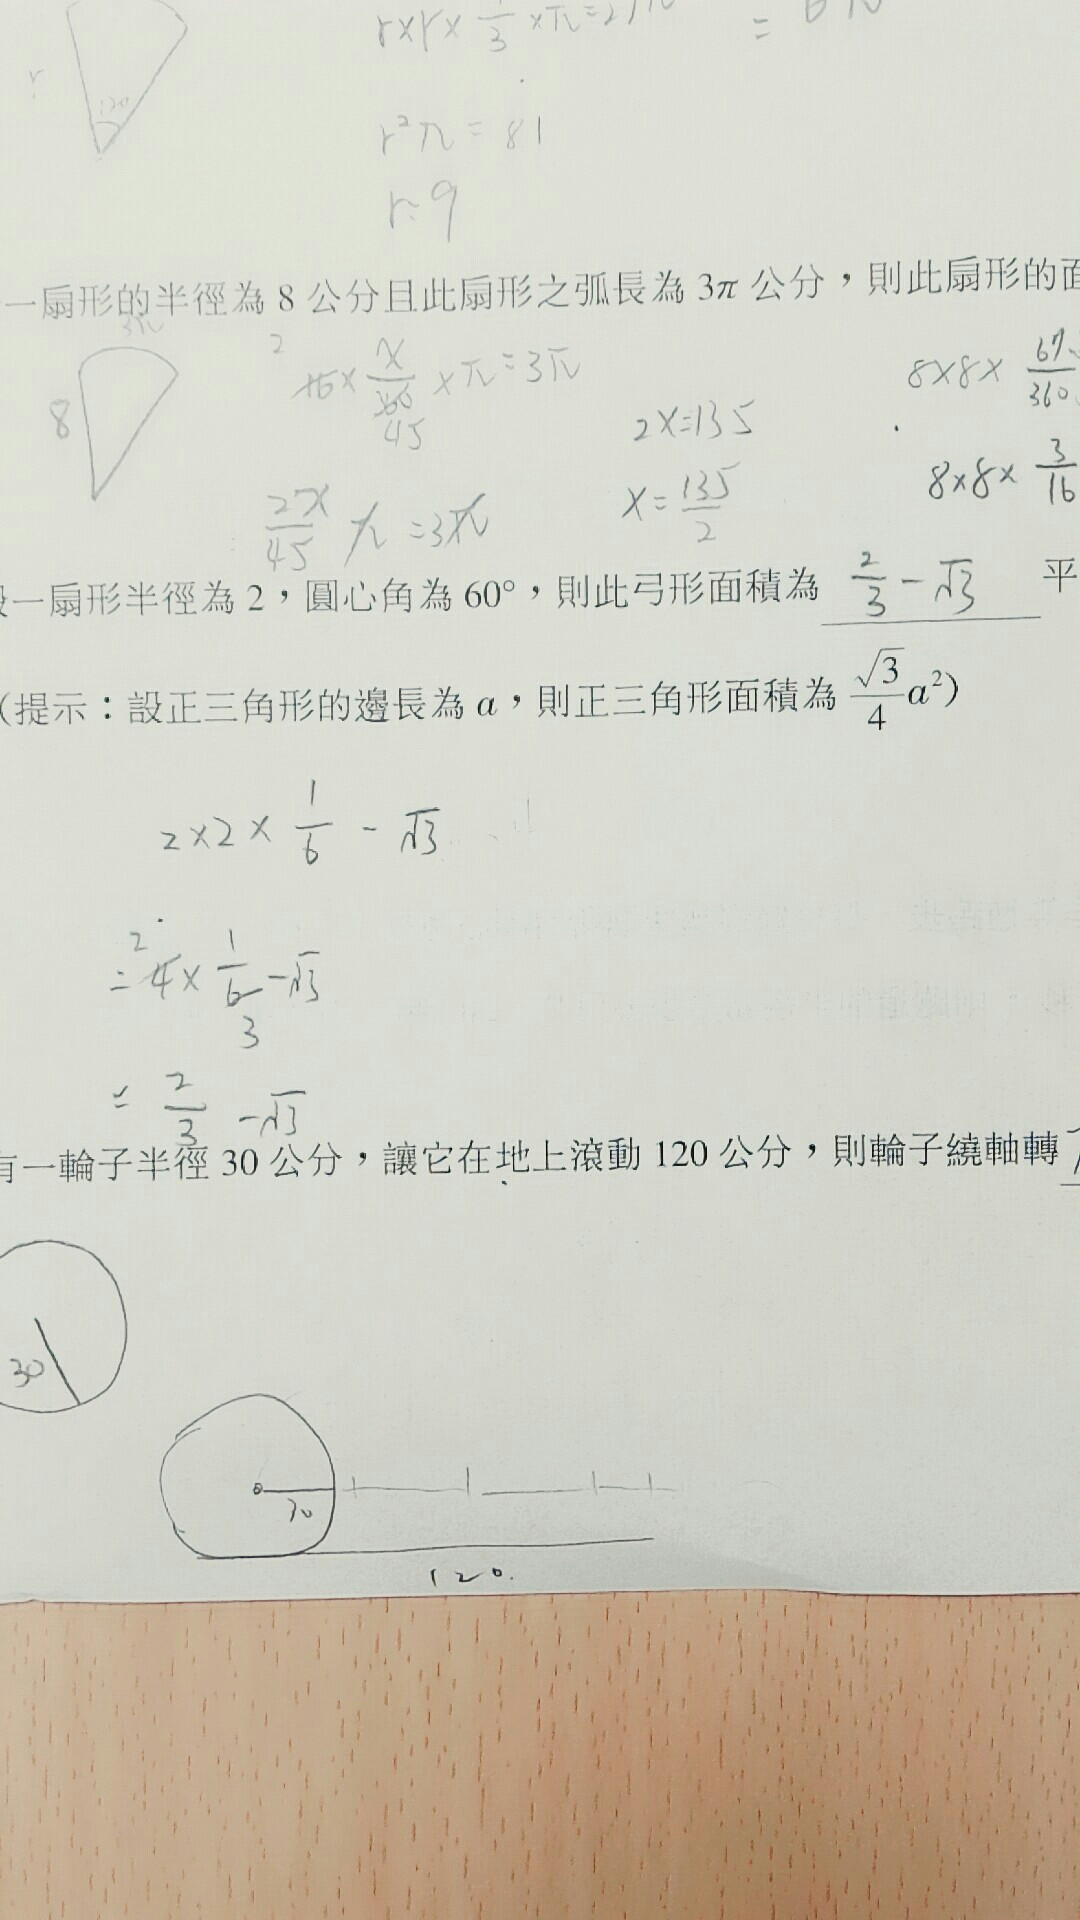 r×r×1/3×π=27π
= 6π
r
120
r²π=81
r=9
一扇形的半徑為 8 公分且此扇形之弧長為 3π 公分，則此扇形的面
3π
8
2
16×x/360×π=3π
45
2x/45 π=3π
2x=135
x=135/2
8×8×67/360
8×8×3/16
一扇形半徑為 2，圓心角為 60°，則此弓形面積為 2/3-√3 平
(提示：設正三角形的邊長為 a，則正三角形面積為 √3/4 a²)
2×2×1/6-√3
2
=4×1/6-√3
3
=2/3-√3
有一輪子半徑 30 公分，讓它在地上滾動 120 公分，則輪子繞軸轉
30
30
120.